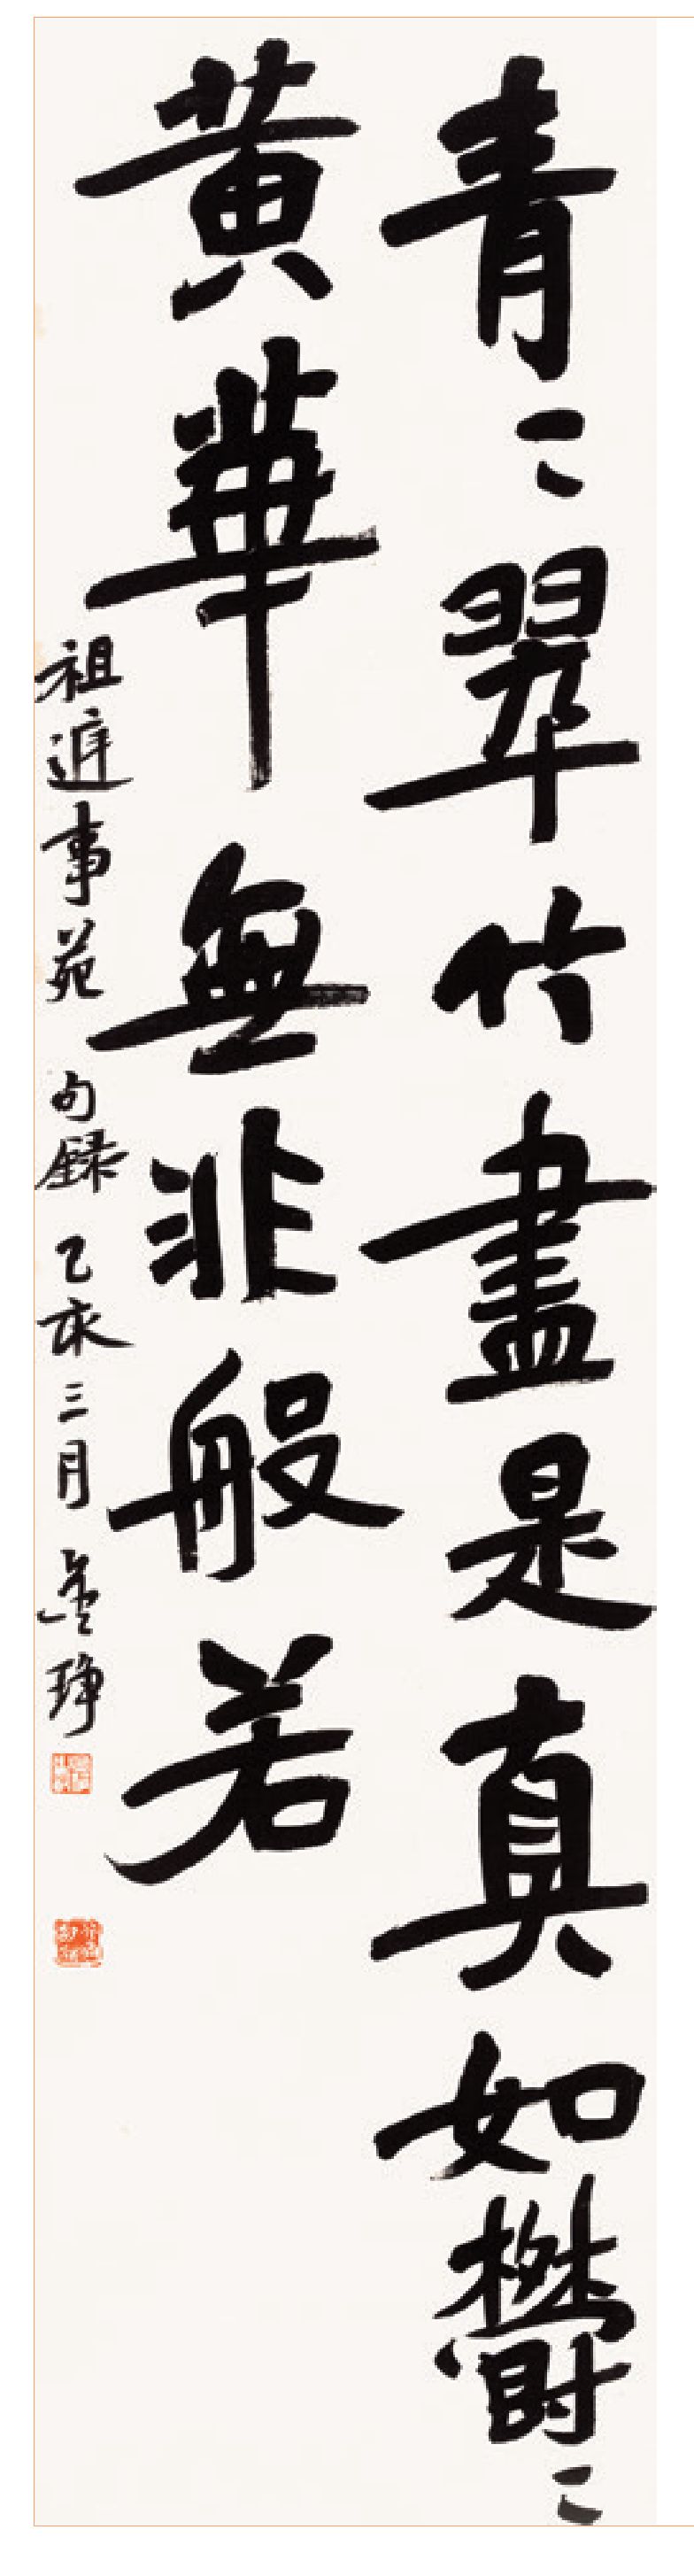 青〻翠竹盡是真如鬱〻
黃華無非般若
祖庭事苑 句録 乙亥三月